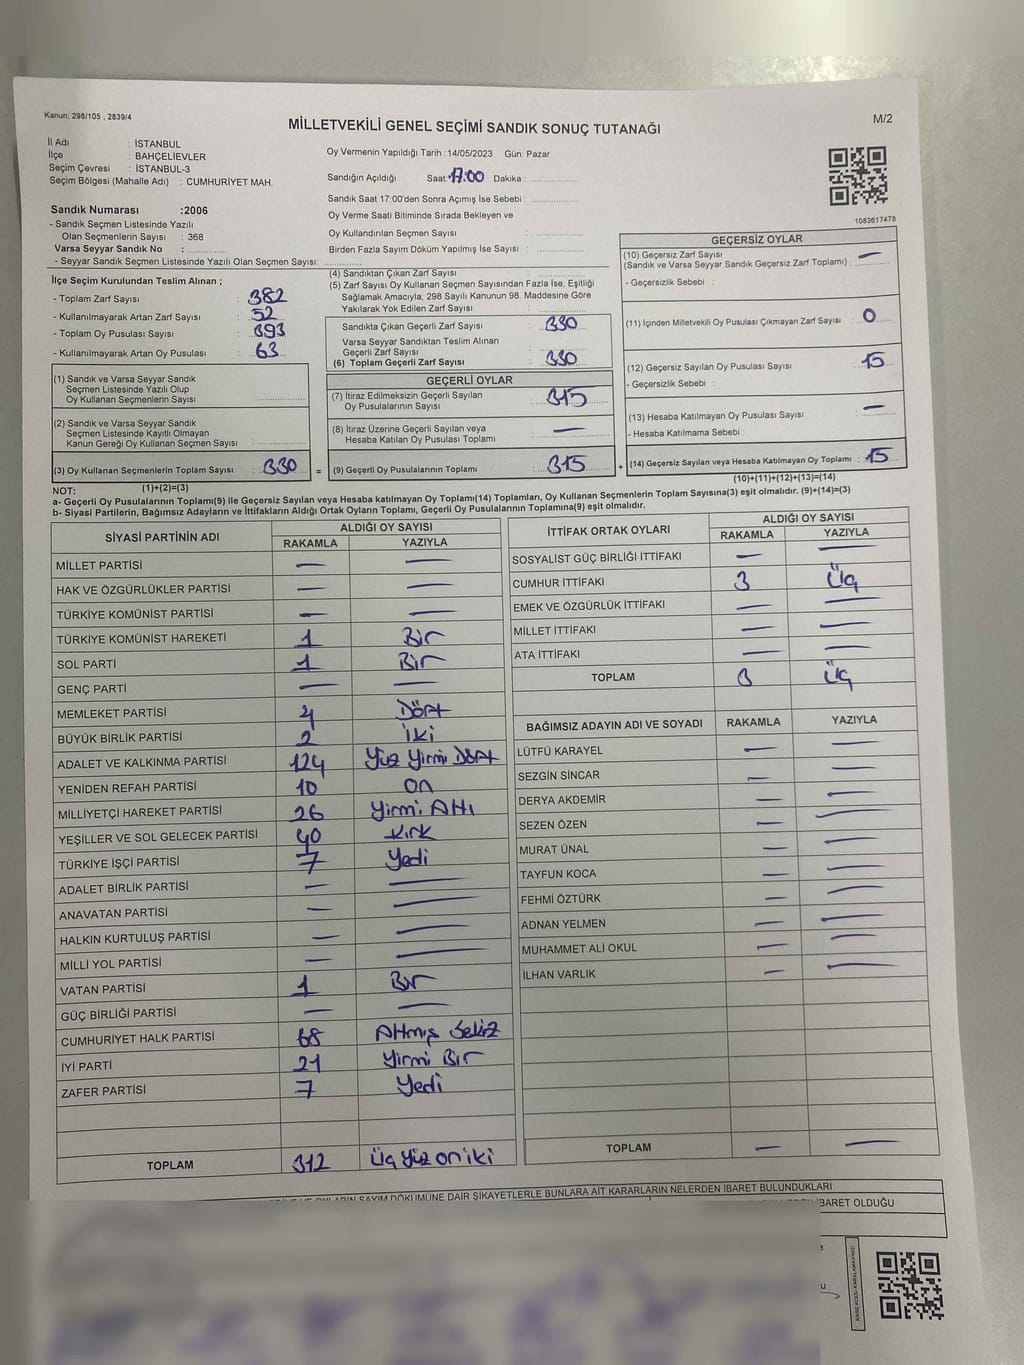 Kanun; 298/105 , 2839/4
MİLLETVEKİLİ GENEL SEÇİMİ SANDIK SONUÇ TUTANAĞI
M/2
İl Adı : İSTANBUL
İlçe : BAHÇELİEVLER
Seçim Çevresi : İSTANBUL-3
Seçim Bölgesi (Mahalle Adı) : CUMHURİYET MAH.
Oy Vermenin Yapıldığı Tarih :14/05/2023 Gün: Pazar
Sandığın Açıldığı Saat: 17:00 Dakika :
Sandık Saat 17:00'den Sonra Açımış İse Sebebi :
Oy Verme Saati Bitiminde Sırada Bekleyen ve
Oy Kullandırılan Seçmen Sayısı :
Birden Fazla Sayım Döküm Yapılmış İse Sayısı :
1083617478
Sandık Numarası :2006
- Sandık Seçmen Listesinde Yazılı
Olan Seçmenlerin Sayısı : 368
Varsa Seyyar Sandık No :
- Seyyar Sandık Seçmen Listesinde Yazılı Olan Seçmen Sayısı:
İlçe Seçim Kurulundan Teslim Alınan ;
- Toplam Zarf Sayısı : 382
- Kullanılmayarak Artan Zarf Sayısı : 52
- Toplam Oy Pusulası Sayısı : 393
- Kullanılmayarak Artan Oy Pusulası : 63
(1) Sandık ve Varsa Seyyar Sandık
Seçmen Listesinde Yazılı Olup
Oy Kullanan Seçmenlerin Sayısı :
(2) Sandık ve Varsa Seyyar Sandık
Seçmen Listesinde Kayıtlı Olmayan
Kanun Gereği Oy Kullanan Seçmen Sayısı :
(3) Oy Kullanan Seçmenlerin Toplam Sayısı : 330 =
(1)+(2)=(3)
(4) Sandıktan Çıkan Zarf Sayısı :
(5) Zarf Sayısı Oy Kullanan Seçmen Sayısından Fazla İse, Eşitliği
Sağlamak Amacıyla; 298 Sayılı Kanunun 98. Maddesine Göre
Yakılarak Yok Edilen Zarf Sayısı :
Sandıkta Çıkan Geçerli Zarf Sayısı : 330
Varsa Seyyar Sandıktan Teslim Alınan
Geçerli Zarf Sayısı :
(6) Toplam Geçerli Zarf Sayısı : 330
GEÇERLİ OYLAR
(7) İtiraz Edilmeksizin Geçerli Sayılan
Oy Pusulalarının Sayısı : 315
(8) İtiraz Üzerine Geçerli Sayılan veya
Hesaba Katılan Oy Pusulası Toplamı : —
(9) Geçerli Oy Pusulalarının Toplamı : 315 +
GEÇERSİZ OYLAR
(10) Geçersiz Zarf Sayısı
(Sandık ve Varsa Seyyar Sandık Geçersiz Zarf Toplamı) : —
- Geçersizlik Sebebi :
(11) İçinden Milletvekili Oy Pusulası Çıkmayan Zarf Sayısı : 0
(12) Geçersiz Sayılan Oy Pusulası Sayısı : 15
- Geçersizlik Sebebi :
(13) Hesaba Katılmayan Oy Pusulası Sayısı : —
- Hesaba Katılmama Sebebi :
(14) Geçersiz Sayılan veya Hesaba Katılmayan Oy Toplamı : 15
(10)+(11)+(12)+(13)=(14)
NOT:
a- Geçerli Oy Pusulalarının Toplamı(9) ile Geçersiz Sayılan veya Hesaba katılmayan Oy Toplamı(14) Toplamları, Oy Kullanan Seçmenlerin Toplam Sayısına(3) eşit olmalıdır. (9)+(14)=(3)
b- Siyasi Partilerin, Bağımsız Adayların ve İttifakların Aldığı Ortak Oyların Toplamı, Geçerli Oy Pusulalarının Toplamına(9) eşit olmalıdır.
SİYASİ PARTİNİN ADI ALDIĞI OY SAYISI
RAKAMLA YAZIYLA
MİLLET PARTİSİ — —
HAK VE ÖZGÜRLÜKLER PARTİSİ — —
TÜRKİYE KOMÜNİST PARTİSİ — —
TÜRKİYE KOMÜNİST HAREKETİ 1 Bir
SOL PARTİ 1 Bir
GENÇ PARTİ — —
MEMLEKET PARTİSİ 4 Dört
BÜYÜK BİRLİK PARTİSİ 2 İki
ADALET VE KALKINMA PARTİSİ 124 Yüz Yirmi Dört
YENİDEN REFAH PARTİSİ 10 On
MİLLİYETÇİ HAREKET PARTİSİ 26 Yirmi Altı
YEŞİLLER VE SOL GELECEK PARTİSİ 40 Kırk
TÜRKİYE İŞÇİ PARTİSİ 7 Yedi
ADALET BİRLİK PARTİSİ — —
ANAVATAN PARTİSİ — —
HALKIN KURTULUŞ PARTİSİ — —
MİLLİ YOL PARTİSİ — —
VATAN PARTİSİ 1 Bir
GÜÇ BİRLİĞİ PARTİSİ — —
CUMHURİYET HALK PARTİSİ 68 Altmış Sekiz
İYİ PARTİ 21 Yirmi Bir
ZAFER PARTİSİ 7 Yedi
TOPLAM 312 Üç Yüz on iki
İTTİFAK ORTAK OYLARI ALDIĞI OY SAYISI
RAKAMLA YAZIYLA
SOSYALİST GÜÇ BİRLİĞİ İTTİFAKI — —
CUMHUR İTTİFAKI 3 Üç
EMEK VE ÖZGÜRLÜK İTTİFAKI — —
MİLLET İTTİFAKI — —
ATA İTTİFAKI — —
TOPLAM 3 Üç
BAĞIMSIZ ADAYIN ADI VE SOYADI RAKAMLA YAZIYLA
LÜTFÜ KARAYEL — —
SEZGİN SİNCAR — —
DERYA AKDEMİR — —
SEZEN ÖZEN — —
MURAT ÜNAL — —
TAYFUN KOCA — —
FEHMİ ÖZTÜRK — —
ADNAN YELMEN — —
MUHAMMET ALİ OKUL — —
İLHAN VARLIK — —
TOPLAM — —
OYLARIN SAYIM DÖKÜMÜNE DAİR ŞİKAYETLERLE BUNLARA AİT KARARLARIN NELERDEN İBARET BULUNDUKLARI
İBARET OLDUĞU